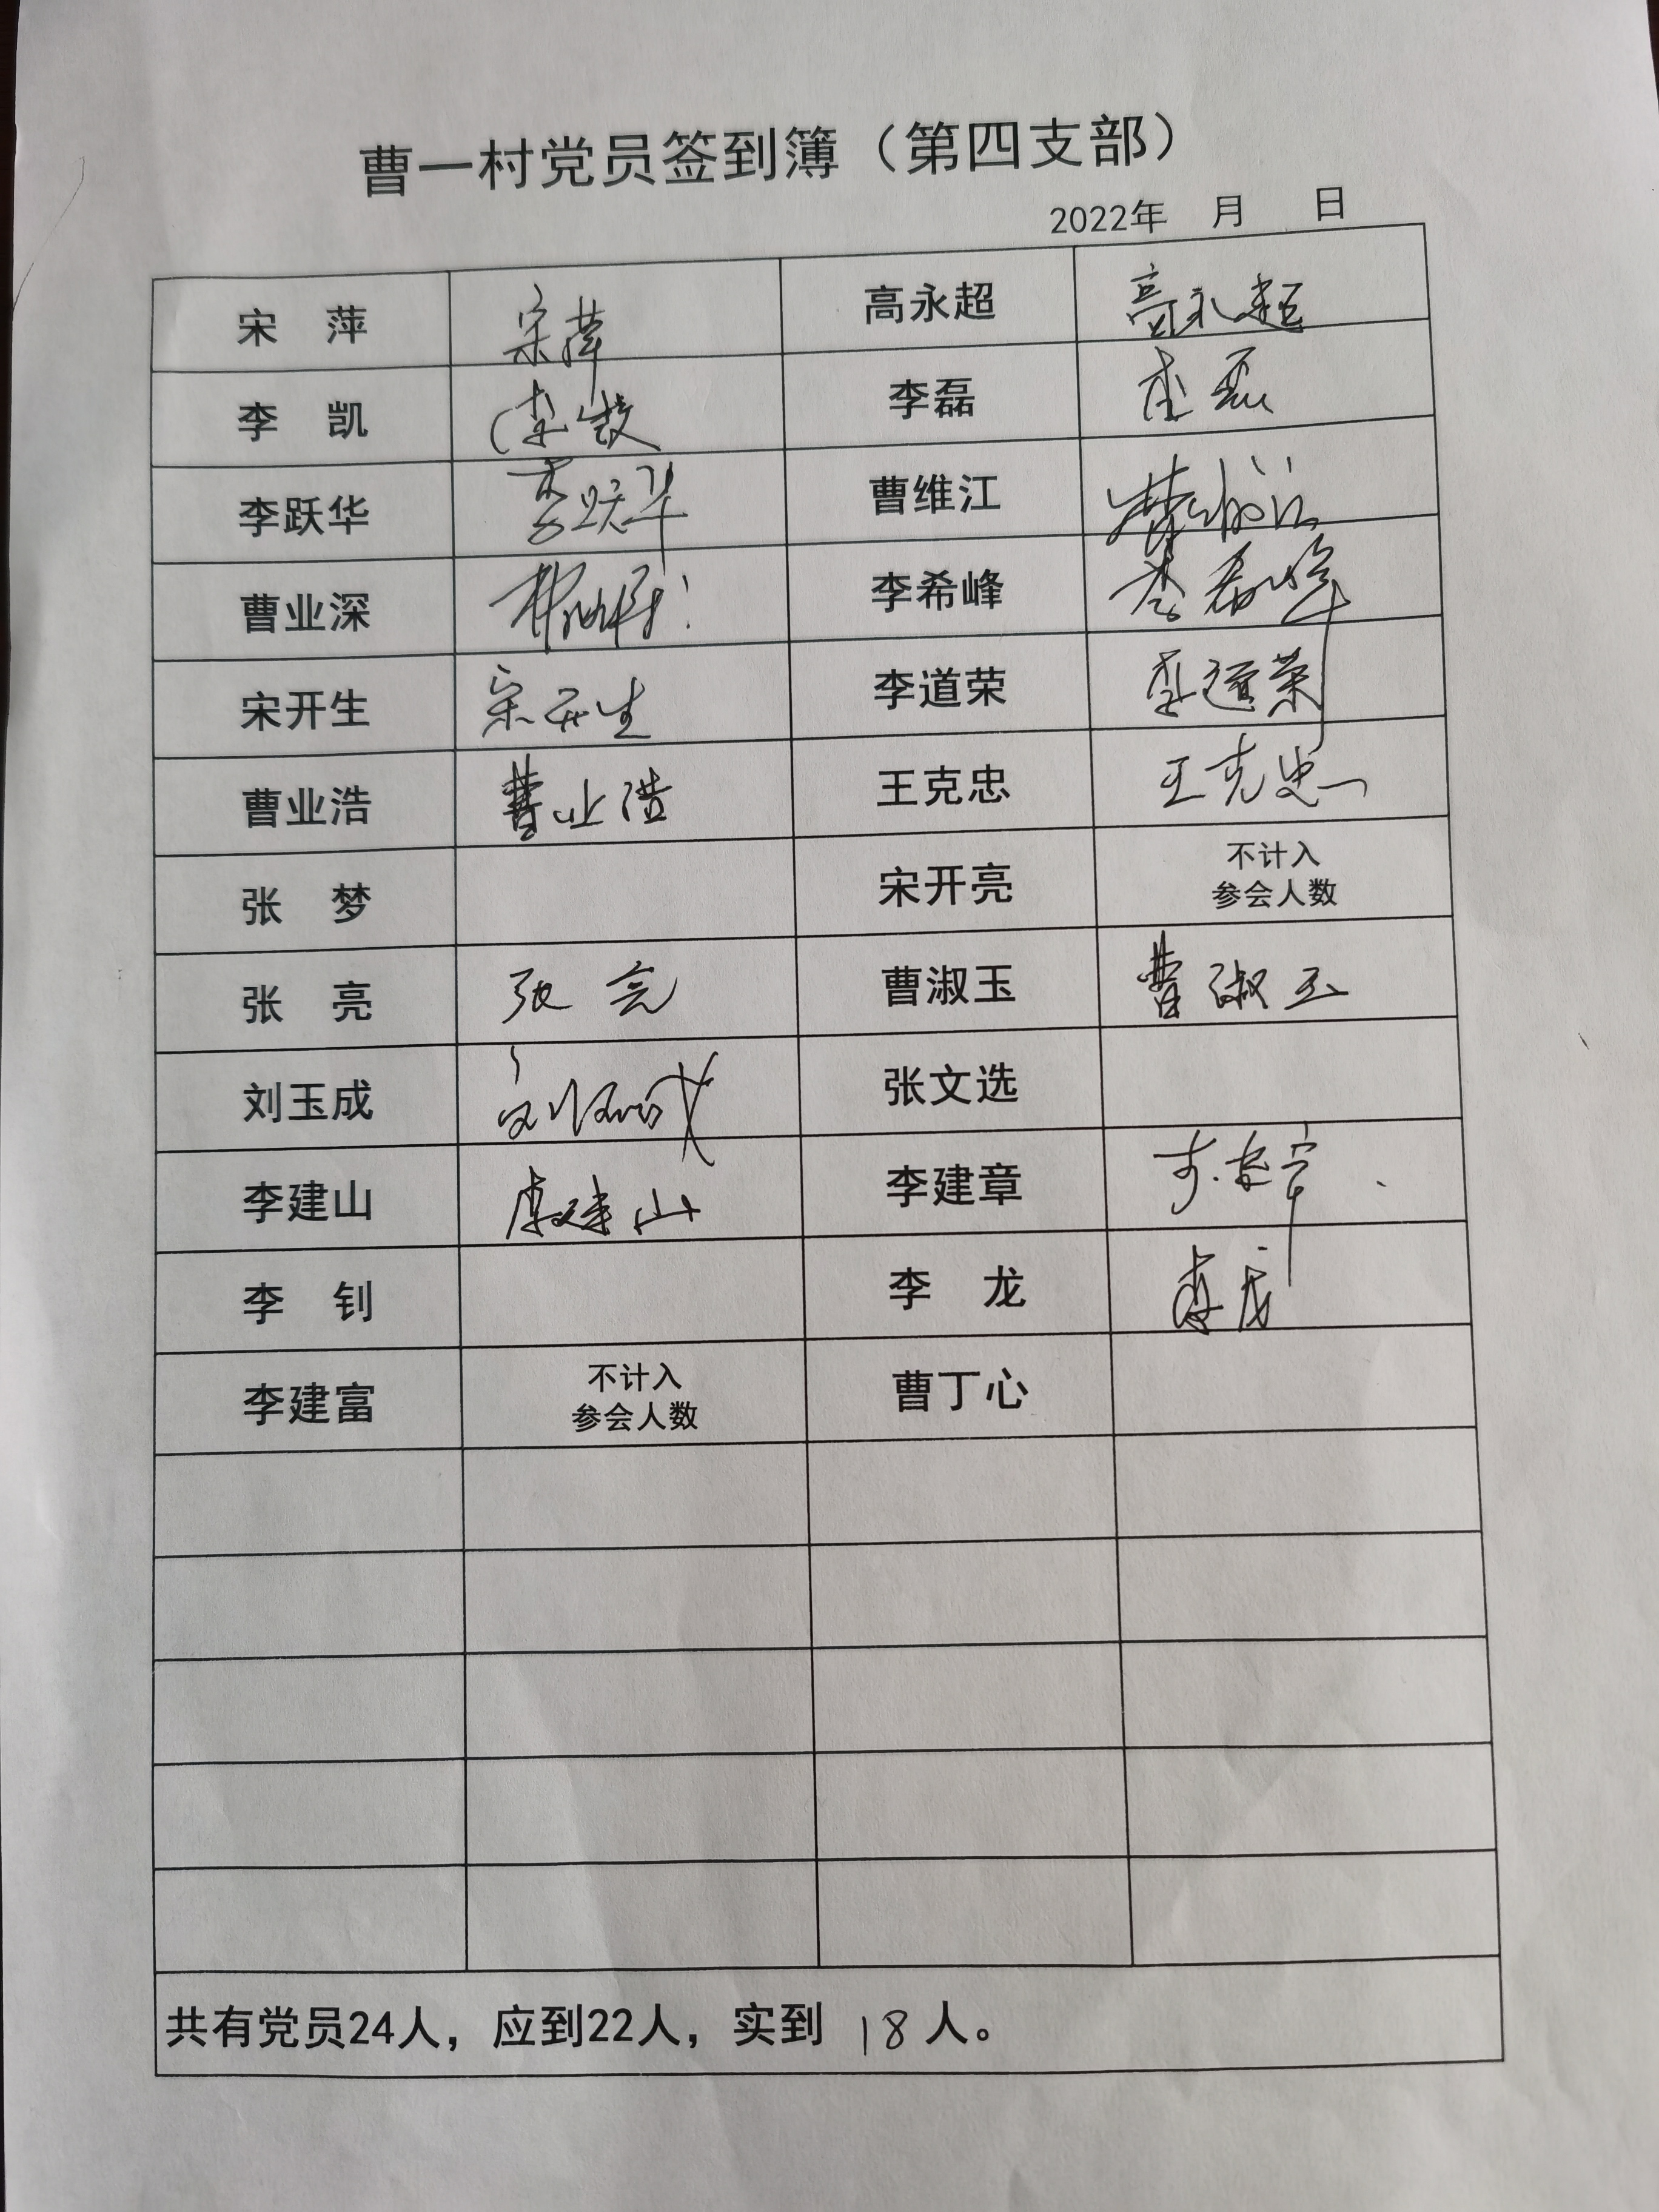 曹一村党员签到簿（第四支部）
2022年 月 日
宋 萍 宋萍 高永超 高永超
李 凯 李凯 李磊 李磊
李跃华 李跃华 曹维江 曹维江
曹业深 李希峰 李希峰
宋开生 宋开生 李道荣 李道荣
曹业浩 曹业浩 王克忠 王克忠
张 梦 宋开亮 不计入
参会人数
张 亮 张亮 曹淑玉 曹淑玉
刘玉成 刘玉成 张文选
李建山 李建山 李建章 李建章
李 钊 李 龙 李龙
李建富 不计入 曹丁心
参会人数
共有党员24人，应到22人，实到 18 人。